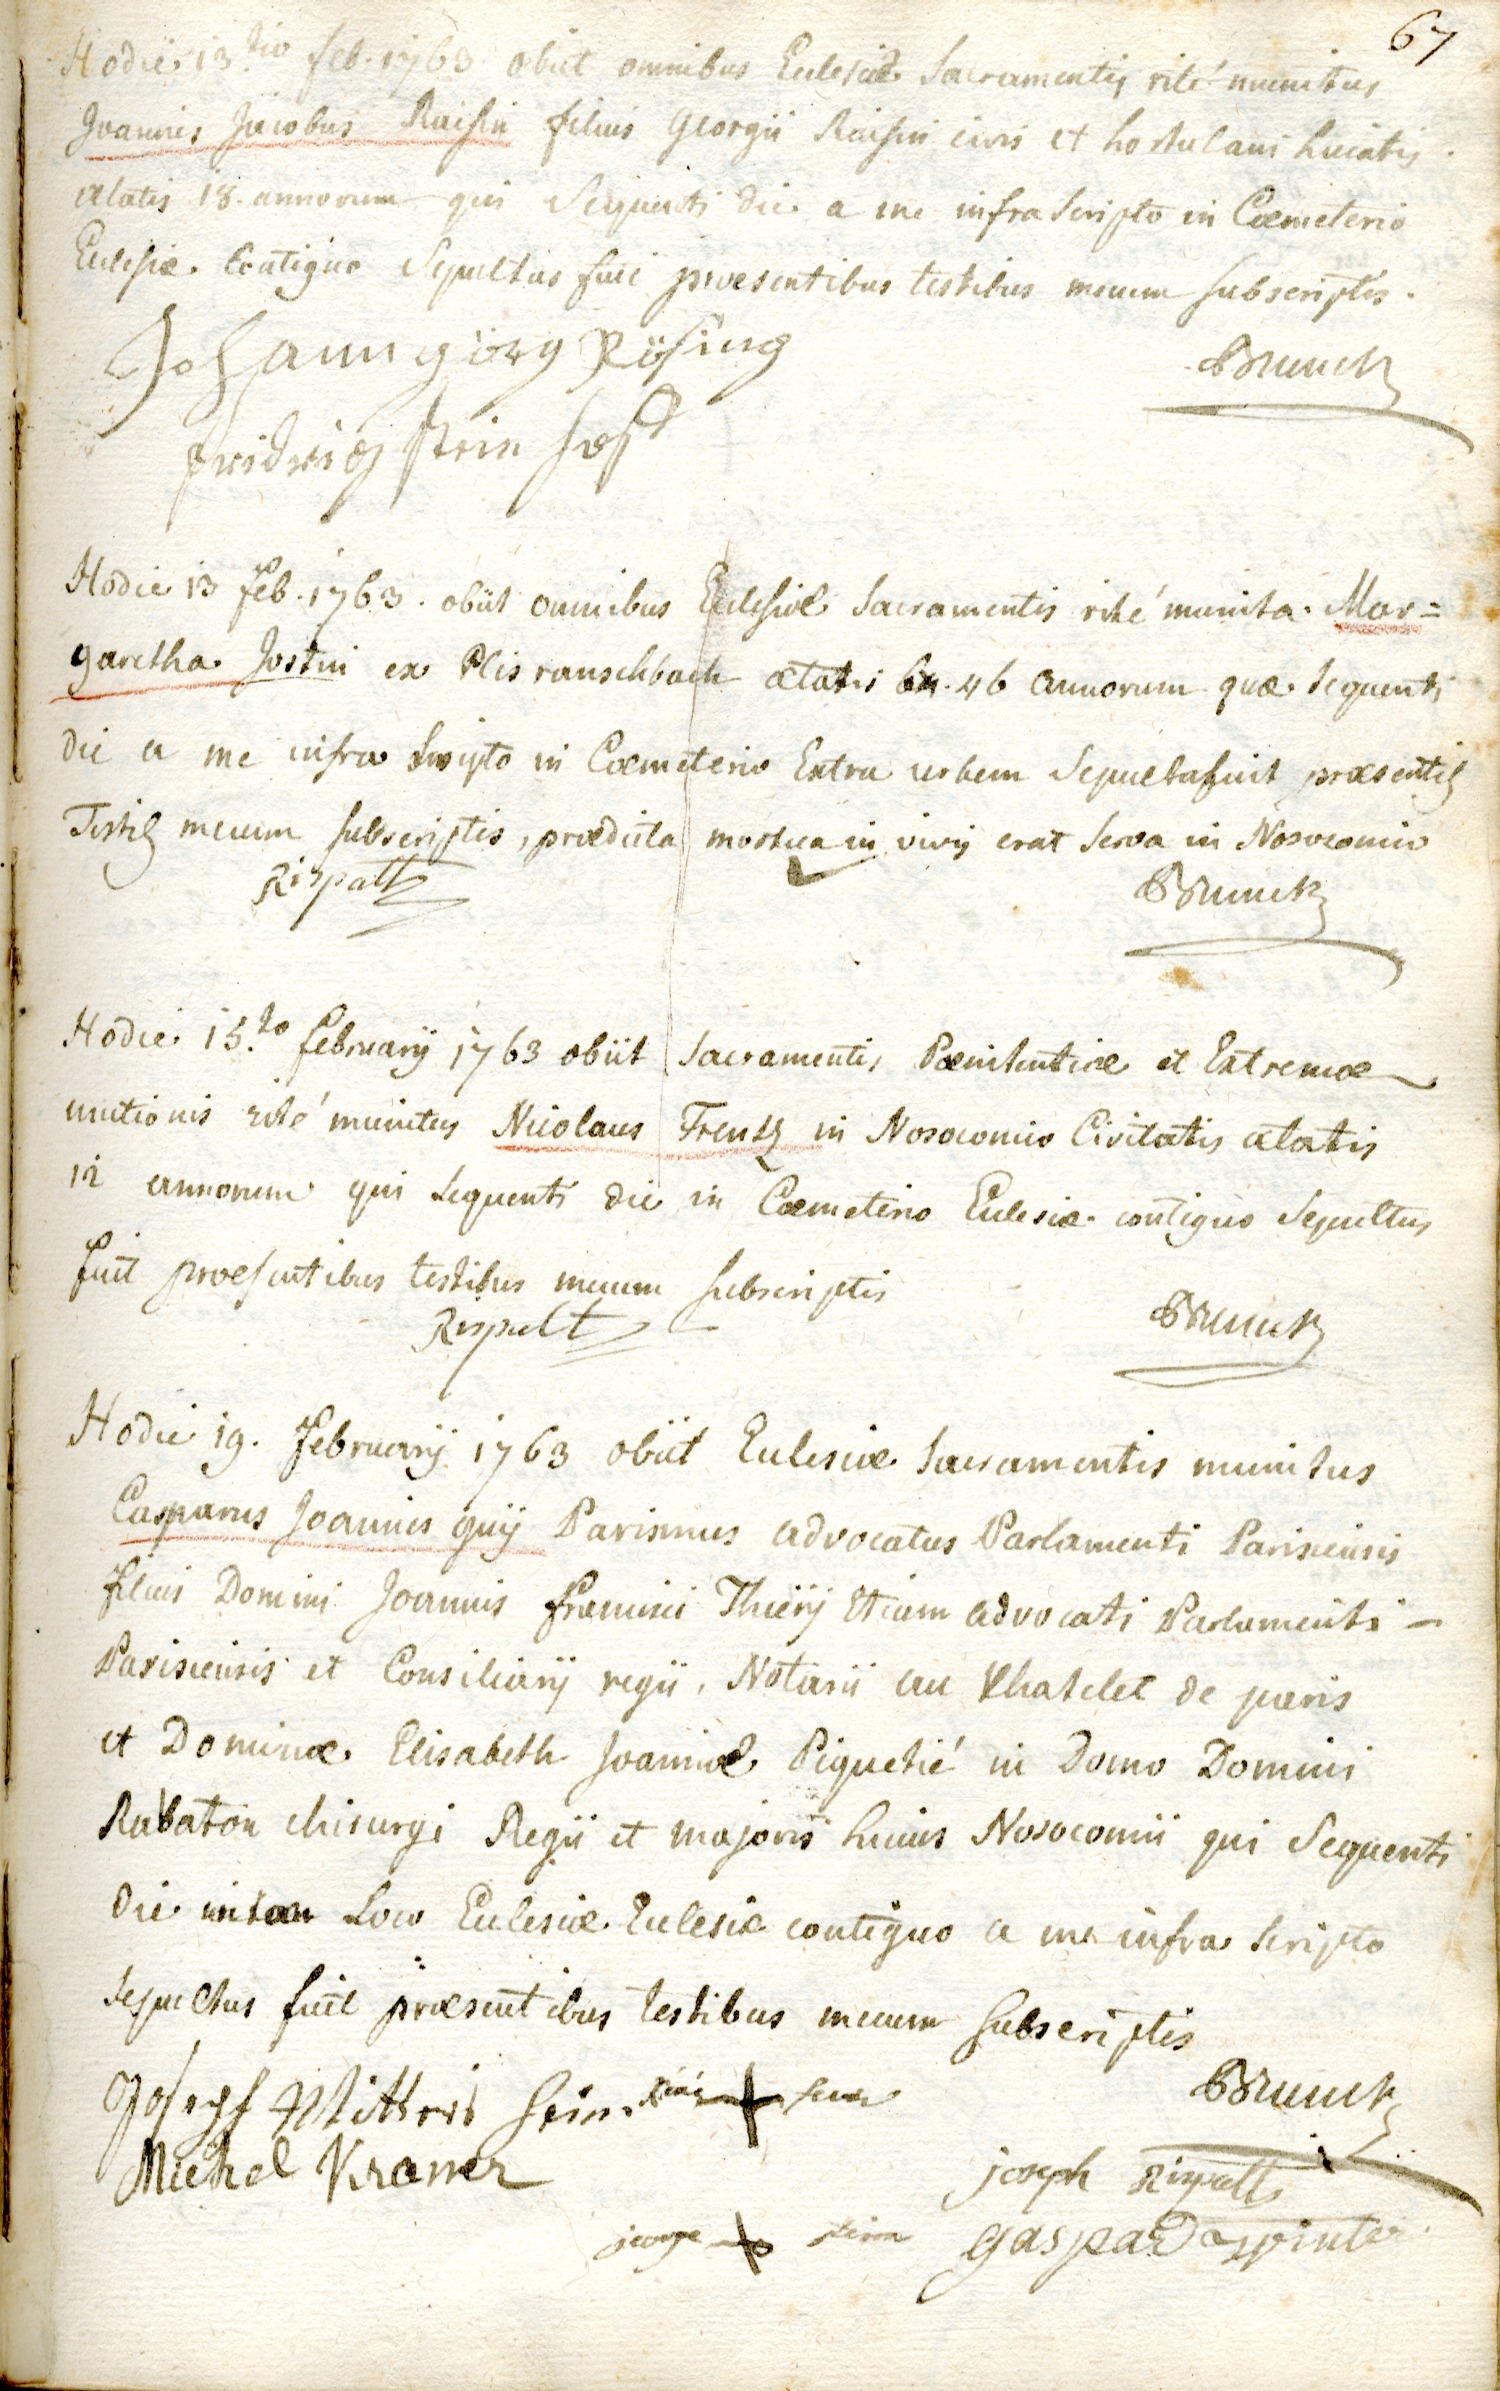 67
Hodie 13tio feb. 1763 obiit omnibus Eclesiæ Sacramentis rité munitus
Joannes Jacobus Raisin filius Georgii Raisin civis et hortulani huiatis.
ætatis 18. annorum qui Sequenti die a me infra Scripto in Cœmeterio
Eclesiæ Contiguo Sepultus fuit præsentibus testibus mecum subscriptis.
Johann görg Rösing
Brunck
fridrich stein
Hodie 13 Feb. 1763. obiit omnibus Eclesiæ Sacramentis rité munita Mar=
garetha Jostin ex Pleisrauschbach ætatis 46 annorum quæ sequenti
die a me infra Scripto in Cœmeterio Extra urbem Sepulta fuit præsentib
Testib mecum subscriptis, prædicta mortua in vivis erat serva in Nosocomio
Rispalt
Brunck
Hodie 15.to february 1763 obiit Sacramentis Pœnitentiæ et Extremæ
unctionis rité munitus Nicolaus Frentz in Nosocomio Civitatis ætatis
12 annorum qui sequenti die in Cœmeterio Eclesiæ contiguo Sepultus
fuit præsentibus testibus mecum subscriptis
Rispalt
Brunck
Hodie 19. February 1763 obiit Eclesiæ Sacramentis munitus
Casparus Joannes guy Parisinus advocatus Parlamenti Parisiensis
filius Domini Joannis francisci Thiery Etiam advocati Parlamenti
Parisiensis et Consiliarÿ regii, Notarii au Chatelet de paris
et Dominæ Elisabeth Joannæ Piquetié in Domo Domini
Rabaton chirurgi Regii et majoris huius Nosocomii qui Sequenti
die Loco Eclesiæ Eclesiæ contiguo a me infra scripto
sepultus fuit præsentibus testibus mecum subscriptis
Joseph +
Brunck
Michel Kramer
joseph Rispalt
george + stein
gaspard winter